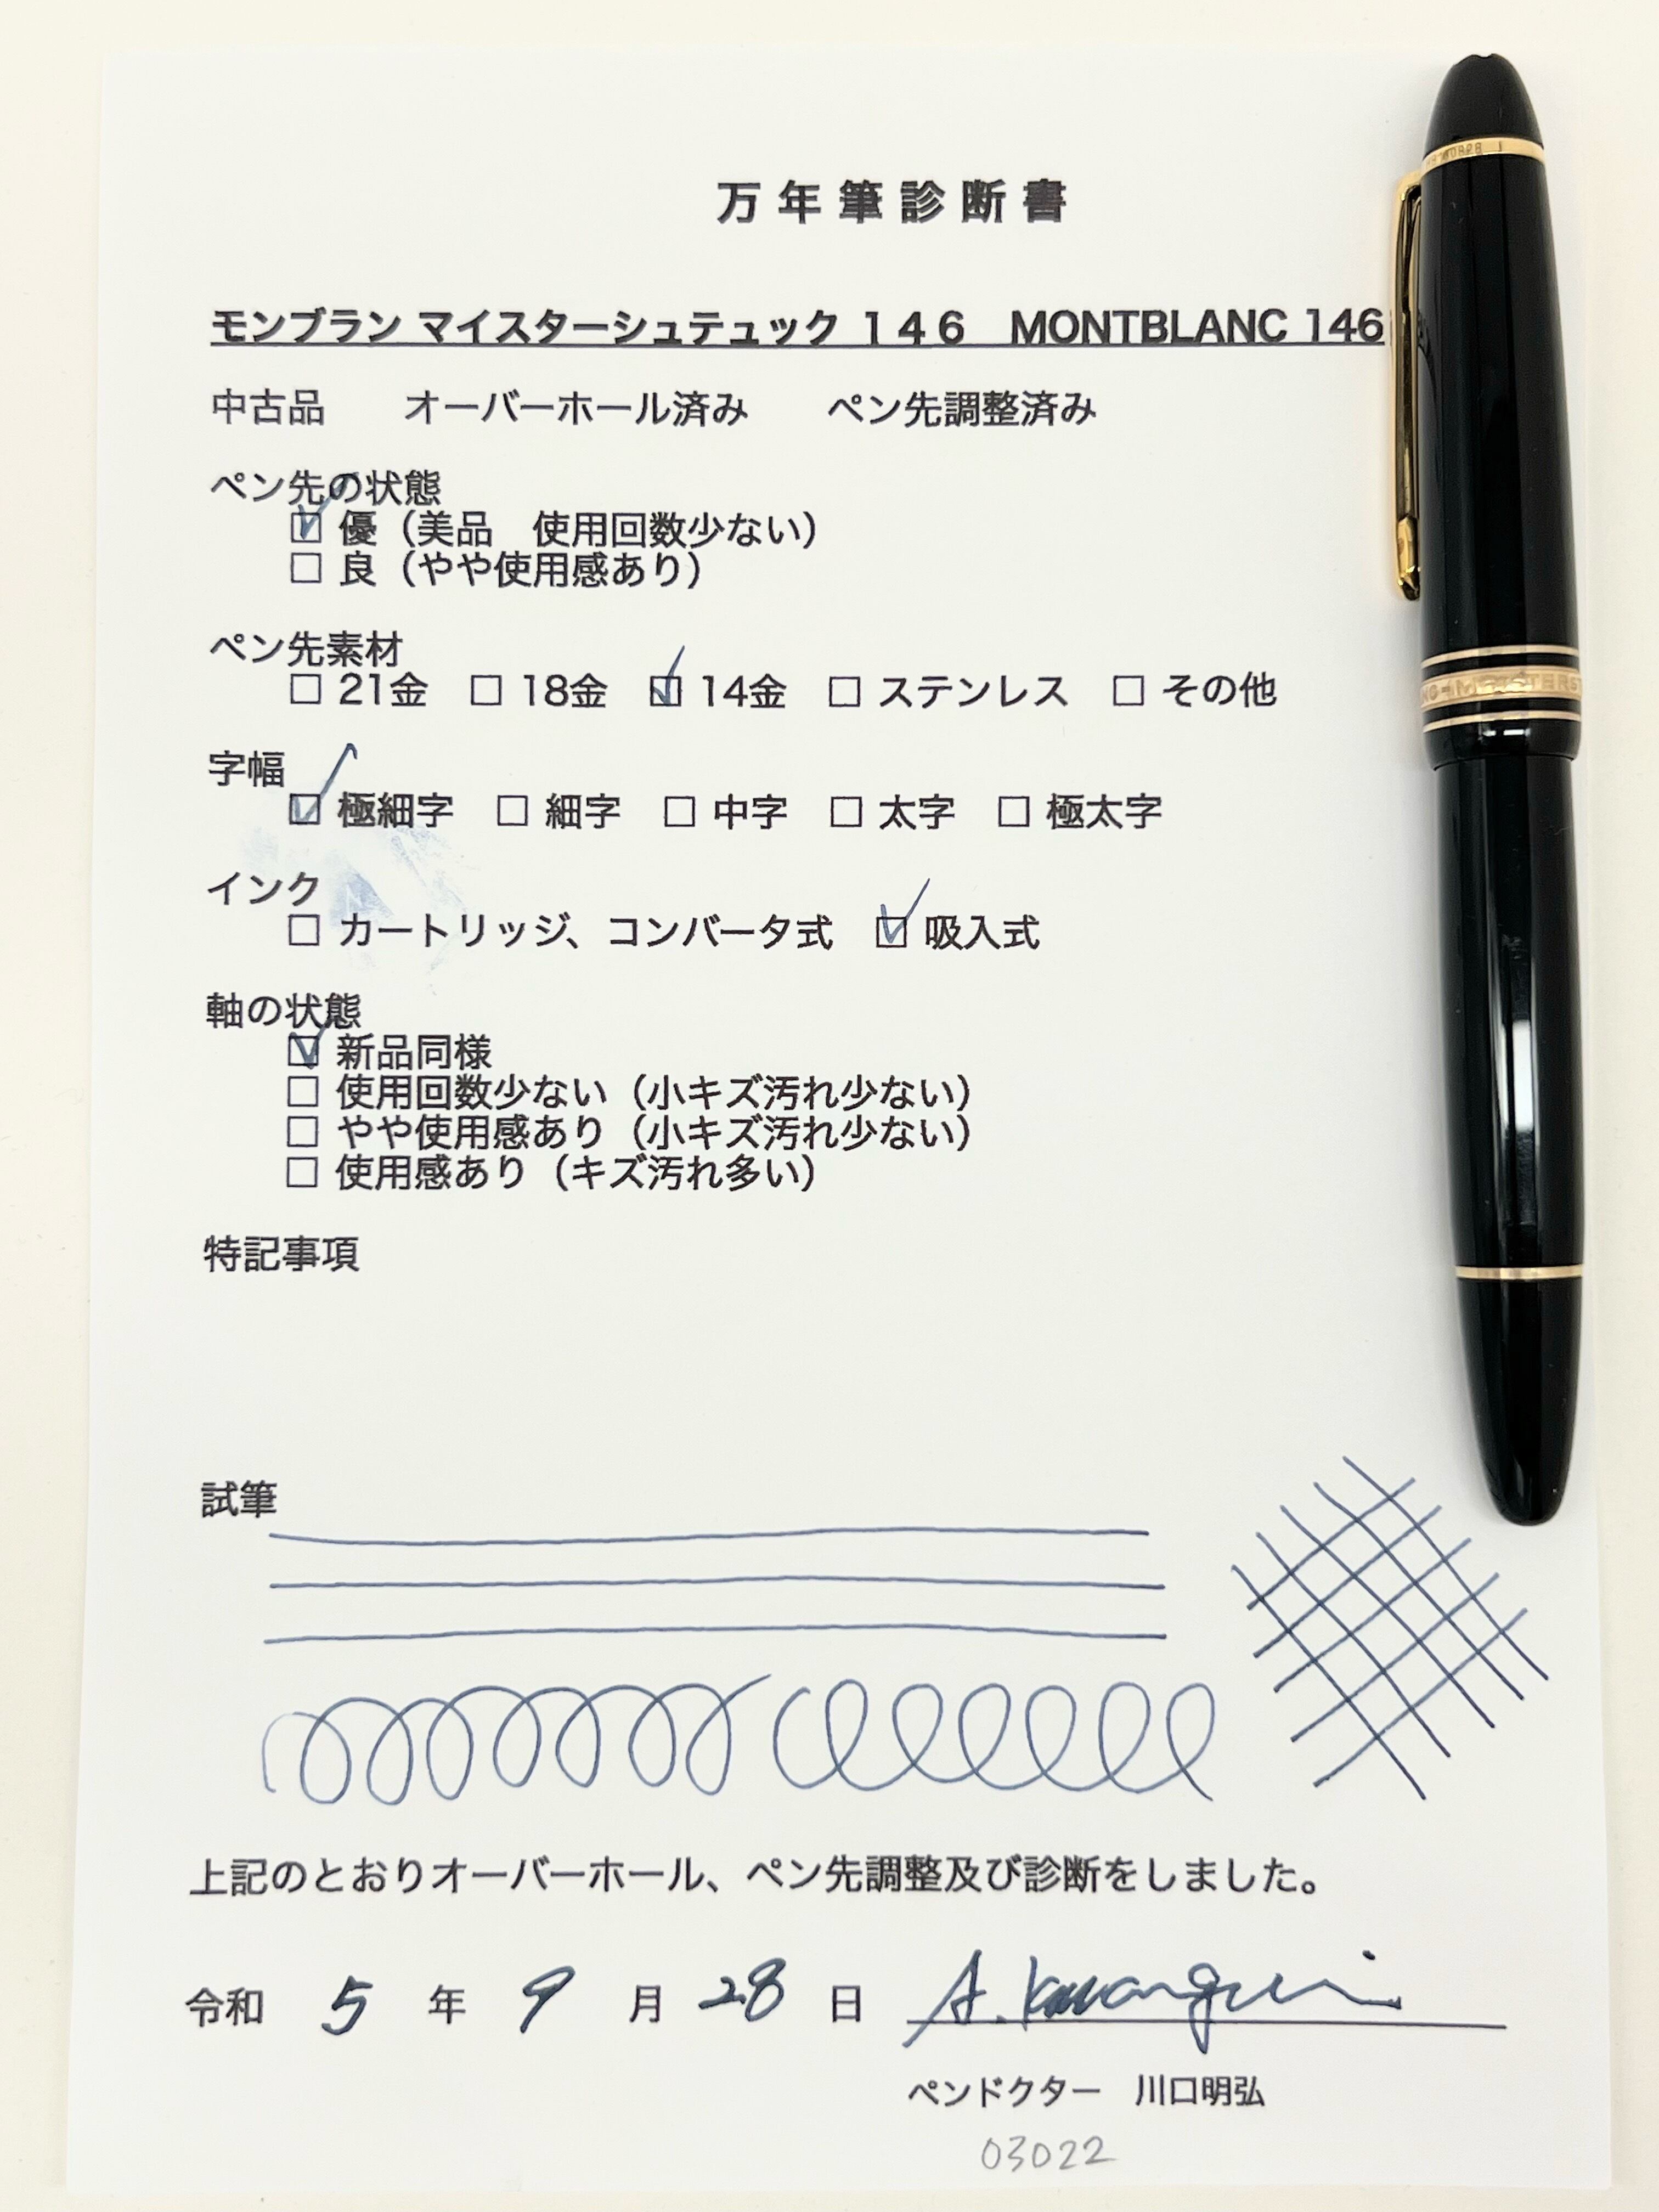 万年筆診断書
モンブラン マイスターシュテュック 146 MONTBLANC 146
中古品 オーバーホール済み ペン先調整済み
ペン先の状態
☑ 優（美品 使用回数少ない）
☐ 良（やや使用感あり）
ペン先素材
☐ 21金 ☐ 18金 ☑ 14金 ☐ ステンレス ☐ その他
字幅
☑ 極細字 ☐ 細字 ☐ 中字 ☐ 太字 ☐ 極太字
インク
☐ カートリッジ、コンバータ式 ☑ 吸入式
軸の状態
☑ 新品同様
☐ 使用回数少ない（小キズ汚れ少ない）
☐ やや使用感あり（小キズ汚れ少ない）
☐ 使用感あり（キズ汚れ多い）
特記事項
試筆
上記のとおりオーバーホール、ペン先調整及び診断をしました。
令和 5 年 9 月 28 日 A. Kawaguchi
ペンドクター 川口明弘
03022